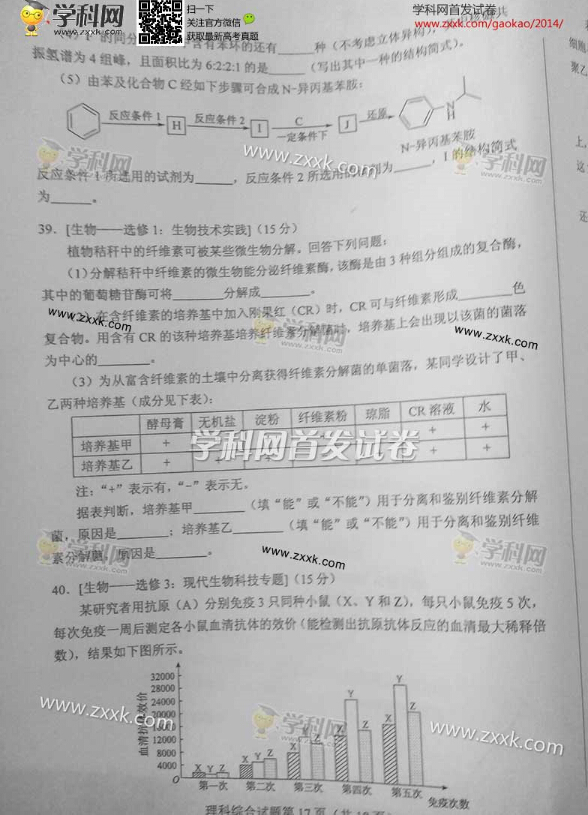 扫一下
关注官方微信
获取最新高考真题
学科网
www.zxxk.com
学科网首发试卷
www.zxxk.com/gaokao/2014/
的同分
含有苯环的还有______种（不考虑立体异构），
振氢谱为4组峰，且面积比为6:2:2:1的是______（写出其中一种的结构简式）。
（5）由苯及化合物C经如下步骤可合成N-异丙基苯胺：
反应条件1 H 反应条件2 I C 一定条件下 J 还原 N H
N-异丙基苯胺
反应条件1所选用的试剂为______，反应条件2所选用的试剂为______，I的结构简式
为______。
39．[生物——选修1：生物技术实践]（15分）
植物秸秆中的纤维素可被某些微生物分解。回答下列问题：
（1）分解秸秆中纤维素的微生物能分泌纤维素酶，该酶是由3种组分组成的复合酶，
其中的葡萄糖苷酶可将______分解成______。
（2）在含纤维素的培养基中加入刚果红（CR）时，CR可与纤维素形成______色
复合物。用含有CR的该种培养基培养纤维素分解菌时，培养基上会出现以该菌的菌落
为中心的______。
（3）为从富含纤维素的土壤中分离获得纤维素分解菌的单菌落，某同学设计了甲、
乙两种培养基（成分见下表）：
酵母膏 无机盐 淀粉 纤维素粉 琼脂 CR溶液 水
培养基甲 + + + +
培养基乙 + + + +
学科网首发试卷
注：“+”表示有，“-”表示无。
据表判断，培养基甲______（填“能”或“不能”）用于分离和鉴别纤维素分解
菌，原因是______；培养基乙______（填“能”或“不能”）用于分离和鉴别纤维
素分解菌，原因是______。
40．[生物——选修3：现代生物科技专题]（15分）
某研究者用抗原（A）分别免疫3只同种小鼠（X、Y和Z），每只小鼠免疫5次，
每次免疫一周后测定各小鼠血清抗体的效价（能检测出抗原抗体反应的血清最大稀释倍
数），结果如下图所示。
血清抗体效价
32000
28000
24000
20000
16000
12000
8000
4000
0
X Y Z X Y Z X Z Y Z X Y Z
第一次 第二次 第三次 第四次 第五次 免疫次数
理科综合试题第17页（共18页）